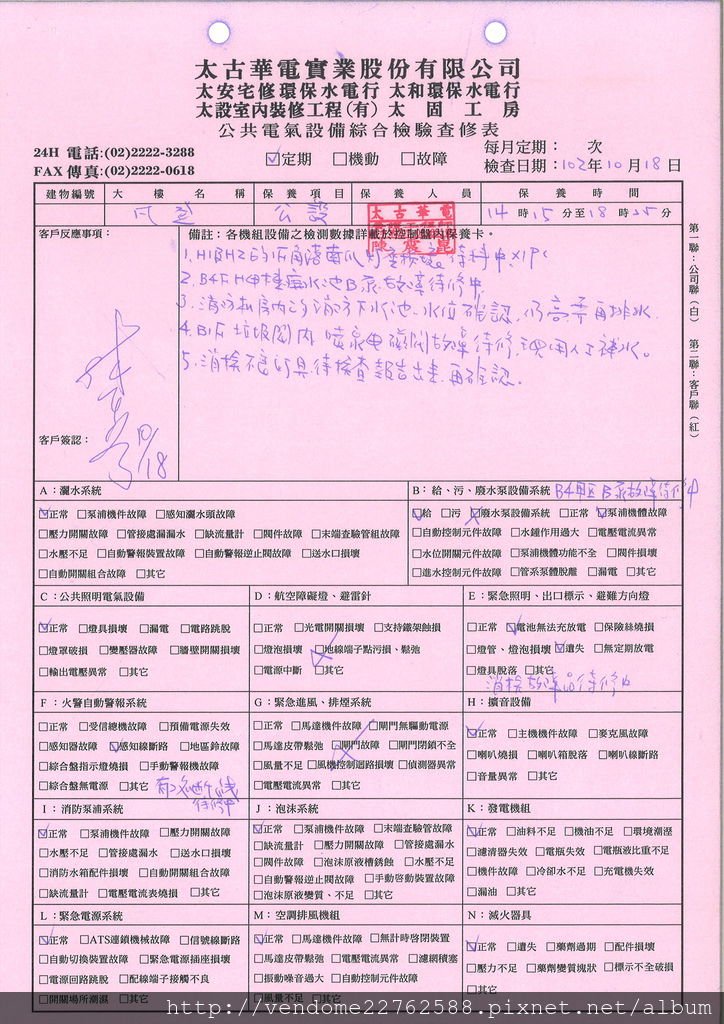 太古華電實業股份有限公司
太安宅修環保水電行 太和環保水電行
太設室內裝修工程(有) 太固工房
公共電氣設備綜合檢驗查修表
24H 電話:(02)2222-3288
FAX 傳真:(02)2222-0618
☑定期 □機動 □故障
每月定期： 次
檢查日期：102年10月18日
建物編號 大樓名稱 保養項目 保養人員 保養時間
公設 太古華電 14時15分至18時25分
客戶反應事項：
備註：各機組設備之檢測數據詳載於控制盤內保養卡。
5.消檢不良可具待檢查報告出來再確認。
客戶簽認：
10/18
第一聯：公司聯（白） 第二聯：客戶聯（紅）
A：灑水系統
☑正常 □泵浦機件故障 □感知灑水頭故障
□壓力開關故障 □管接處漏漏水 □缺流量計 □閥件故障 □末端查驗管組故障
□水壓不足 □自動警報裝置故障 □自動警報逆止閥故障 □送水口損壞
□自動開關組合故障 □其它
B：給、污、廢水泵設備系統
☑給 □污 □廢水泵設備系統 □正常 ☑泵浦機體故障
□自動控制元件故障 □水錘作用過大 □電壓電流異常
□水位開關元件故障 □泵浦機體功能不全 □閥件損壞
□進水控制元件故障 □管系泵體脫離 □漏電 □其它
C：公共照明電氣設備
☑正常 □燈具損壞 □漏電 □電路跳脫
□燈罩破損 □變壓器故障 □牆壁開關損壞
□輸出電壓異常 □其它
D：航空障礙燈、避雷針
□正常 □光電開關損壞 □支持鐵架蝕損
□燈泡損壞 □地線端子點污損、鬆弛
□電源中斷 □其它
E：緊急照明、出口標示、避難方向燈
□正常 ☑電池無法充放電 □保險絲燒損
□燈管、燈泡損壞 ☑遺失 □無定期放電
□燈具脫落 □其它
消檢故障品待修中
F：火警自動警報系統
□正常 □受信總機故障 □預備電源失效
□感知器故障 ☑感知線斷路 □地區鈴故障
□綜合盤指示燈燒損 □手動警報機故障
□綜合盤無電源 □其它
待修中
G：緊急進風、排煙系統
□正常 □馬達機件故障 □閘門無驅動電源
□馬達皮帶鬆弛 □閘門故障 □閘門閉鎖不全
□風量不足 □風機控制迴路損壞 □偵測器異常
□電壓電流異常 □其它
H：擴音設備
☑正常 □主機機件故障 □麥克風故障
□喇叭燒損 □喇叭箱脫落 □喇叭線斷路
□音量異常 □其它
I：消防泵浦系統
☑正常 □泵浦機件故障 □壓力開關故障
□水壓不足 □管接處漏水 □送水口損壞
□消防水箱配件損壞 □自動開關組合故障
□缺流量計 □電壓電流表燒損 □其它
J：泡沫系統
☑正常 □泵浦機件故障 □末端查驗管故障
□缺流量計 □壓力開關故障 □管接處漏水
□閥件故障 □泡沫原液槽銹蝕 □水壓不足
□自動警報逆止閥故障 □手動啓動裝置故障
□泡沫原液變質、不足 □其它
K：發電機組
☑正常 □油料不足 □機油不足 □環境潮溼
□濾清器失效 □電瓶失效 □電瓶液比重不足
□機件故障 □冷卻水不足 □充電機失效
□漏油 □其它
L：緊急電源系統
☑正常 □ATS連鎖機械故障 □信號線斷路
□自動切換裝置故障 □緊急電源插座損壞
□電源回路跳脫 □配線端子接觸不良
□開關場所潮濕 □其它
M：空調排風機組
☑正常 □馬達機件故障 □無計時啓閉裝置
□馬達皮帶鬆弛 □電壓電流異常 □濾網積塞
□振動噪音過大 □自動控制元件故障
□風量不足 □其它
N：滅火器具
☑正常 □遺失 □藥劑過期 □配件損壞
□壓力不足 □藥劑變質塊狀 □標示不全破損
□其它
http://vendome22762588.pixnet.net/album